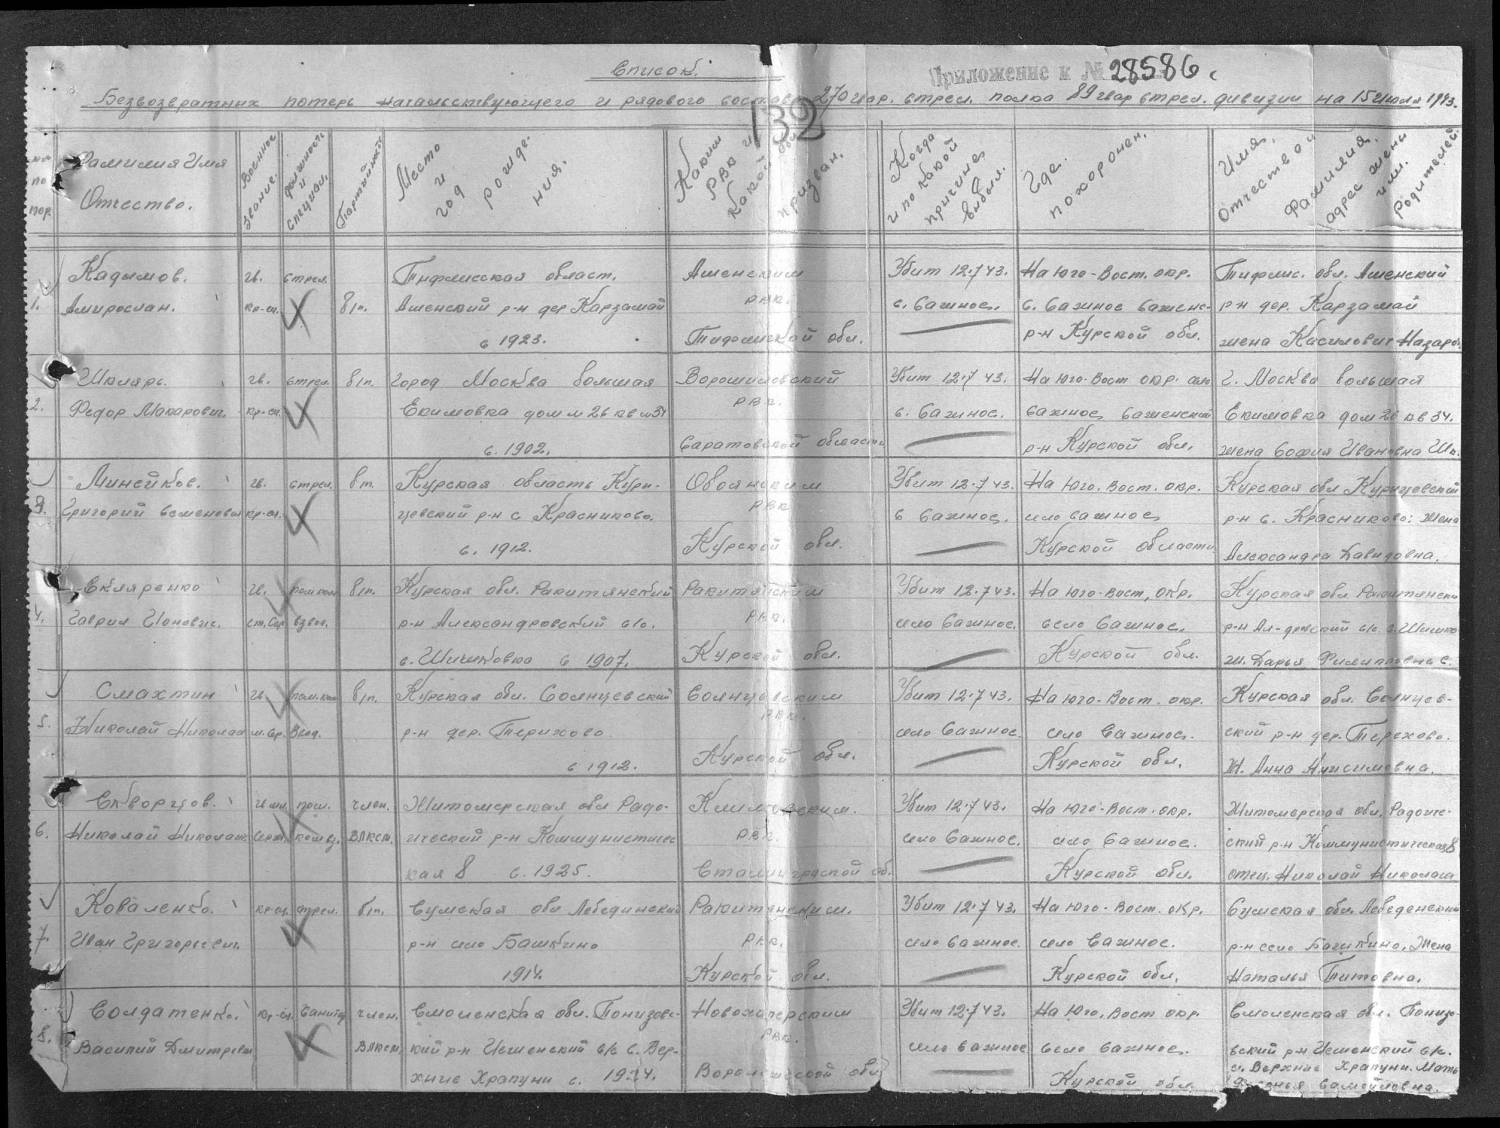 Список.
Приложение к № 28586 с
Безвозвратних потерь начальствующего и рядового состава 270 гвар. стрел. полка 89 гвар стрел. дивизии на 15 июля 1943.
132
по пор.
Фамилия Имя Отчество.
Военное звание.
должность и специал.
Партийность
Место и год рождения.
Каким РВК и какой обл. призван.
Когда и по какой причине выбыл.
Где похоронен.
Имя, Отчество и Фамилия, адрес жены или родителей.
Кадымов. гв. стрел. Тифлисская област. Ашенским Убит 12.7 43. На Юго-Вост. окр. Тифлис. обл. Ашенский
1. Амирослан. кр-ец. б/п. Ашенский р-н дер Карзамай РВК. с. Сажное. с. Сажное Саженс- р-н дер. Карзамай
с 1923. Тифлисской обл. р-н Курской обл. жена Касилович Назаро
Шкляр. гв. стрел. б/п. Город Москва большая Ворошиловский Убит 12.7 43. На Юго-Вост окр. село г. Москва большая
2. Федор Макарович. кр-ец. Екимовка дом м 26 кв м 34 РВК. с. Сажное. Сажное, Саженский Екимовка дом 26 кв 34.
с. 1902. Саратовской области р-н Курской обл. жена София Ивановна Шк.
Минейков. гв. стрел. б/п. Курская область Кури- Обоянским Убит 12.7 43. На Юго. Вост. окр. Курская обл Курицовский
3. Григорий Семенович кр-ец. цевский р-н с Красниково. РВК с Сажное. село Сажное, р-н с. Красниково: Жена
с. 1912. Курской обл. Курской области Александра Давидовна.
Скляренко гв. пом.ком б/п. Курская обл. Ракитянский Ракитянским Убит 12.7 43. На Юго-Вост, окр. Курская обл Ракитянски
4. Гаврил Ионович. ст. Сер. взвод. р-н Александровский с/с. РВК. село Сажное. село Сажное, р-н Ал-дровский с/с с. Шишко
с. Шишковка с 1907. Курской обл. Курской обл. ж. Дарья Филипповна С.
Смахтин гв. пом.ком б/п. Курская обл. Солнцевский Солнцевским Убит 12.7 43. На Юго-Вост. окр. Курская обл. Солнцев-
5. Николай Николаев м. Ср. Взвд. р-н дер. Терихово РВК. село Сажное. село Сажное. ский р-н дер. Терехово.
с 1912. Курской обл. Курской обл. Ж. Анна Анисимовна.
Скворцов. пом. член. Житомерская обл Радо- Климовским. Убит 12.7 43. На Юго-Вост. окр. Житомерская обл. Радоме-
6. Николай Николаев Серж. команд. ВЛКСМ. мческий р-н Коммунистичес РВК. село Сажное. село Сажное. ский р-н Коммунистическая 8
кая 8 с. 1925. Сталинградской об. Курской обл. отец. Николай Николаев
Коваленко. кр-ец. стрел. б/п. Сумская обл Лебединский Ракитянским. Убит 12.7 43. На Юго-Вост. окр. Сумская обл. Лебеденский
7. Иван Григорьевич. р-н село Башкино РВК. село Сажное. село Сажное. р-н село Башкино. Жена
1914. Курской обл. Курской обл. Наталья Титовна.
Солдатенко. кр-ец. Санитар член. Смоленская обл. Понизов- Новохоперским Убит 12.7 43. На Юго. Вост окр Смоленская обл. Понизо-
8. Василий Дмитриевич ВЛКСМ. кий р-н Исменский с/с с. Вер- РВК. село Сажное село Сажное. вский р-н Исменский с/с.
хние Храпуни с. 1924. Воронежской обл Курской обл. с. Верхние Храпуни. Мать
Самойловна.